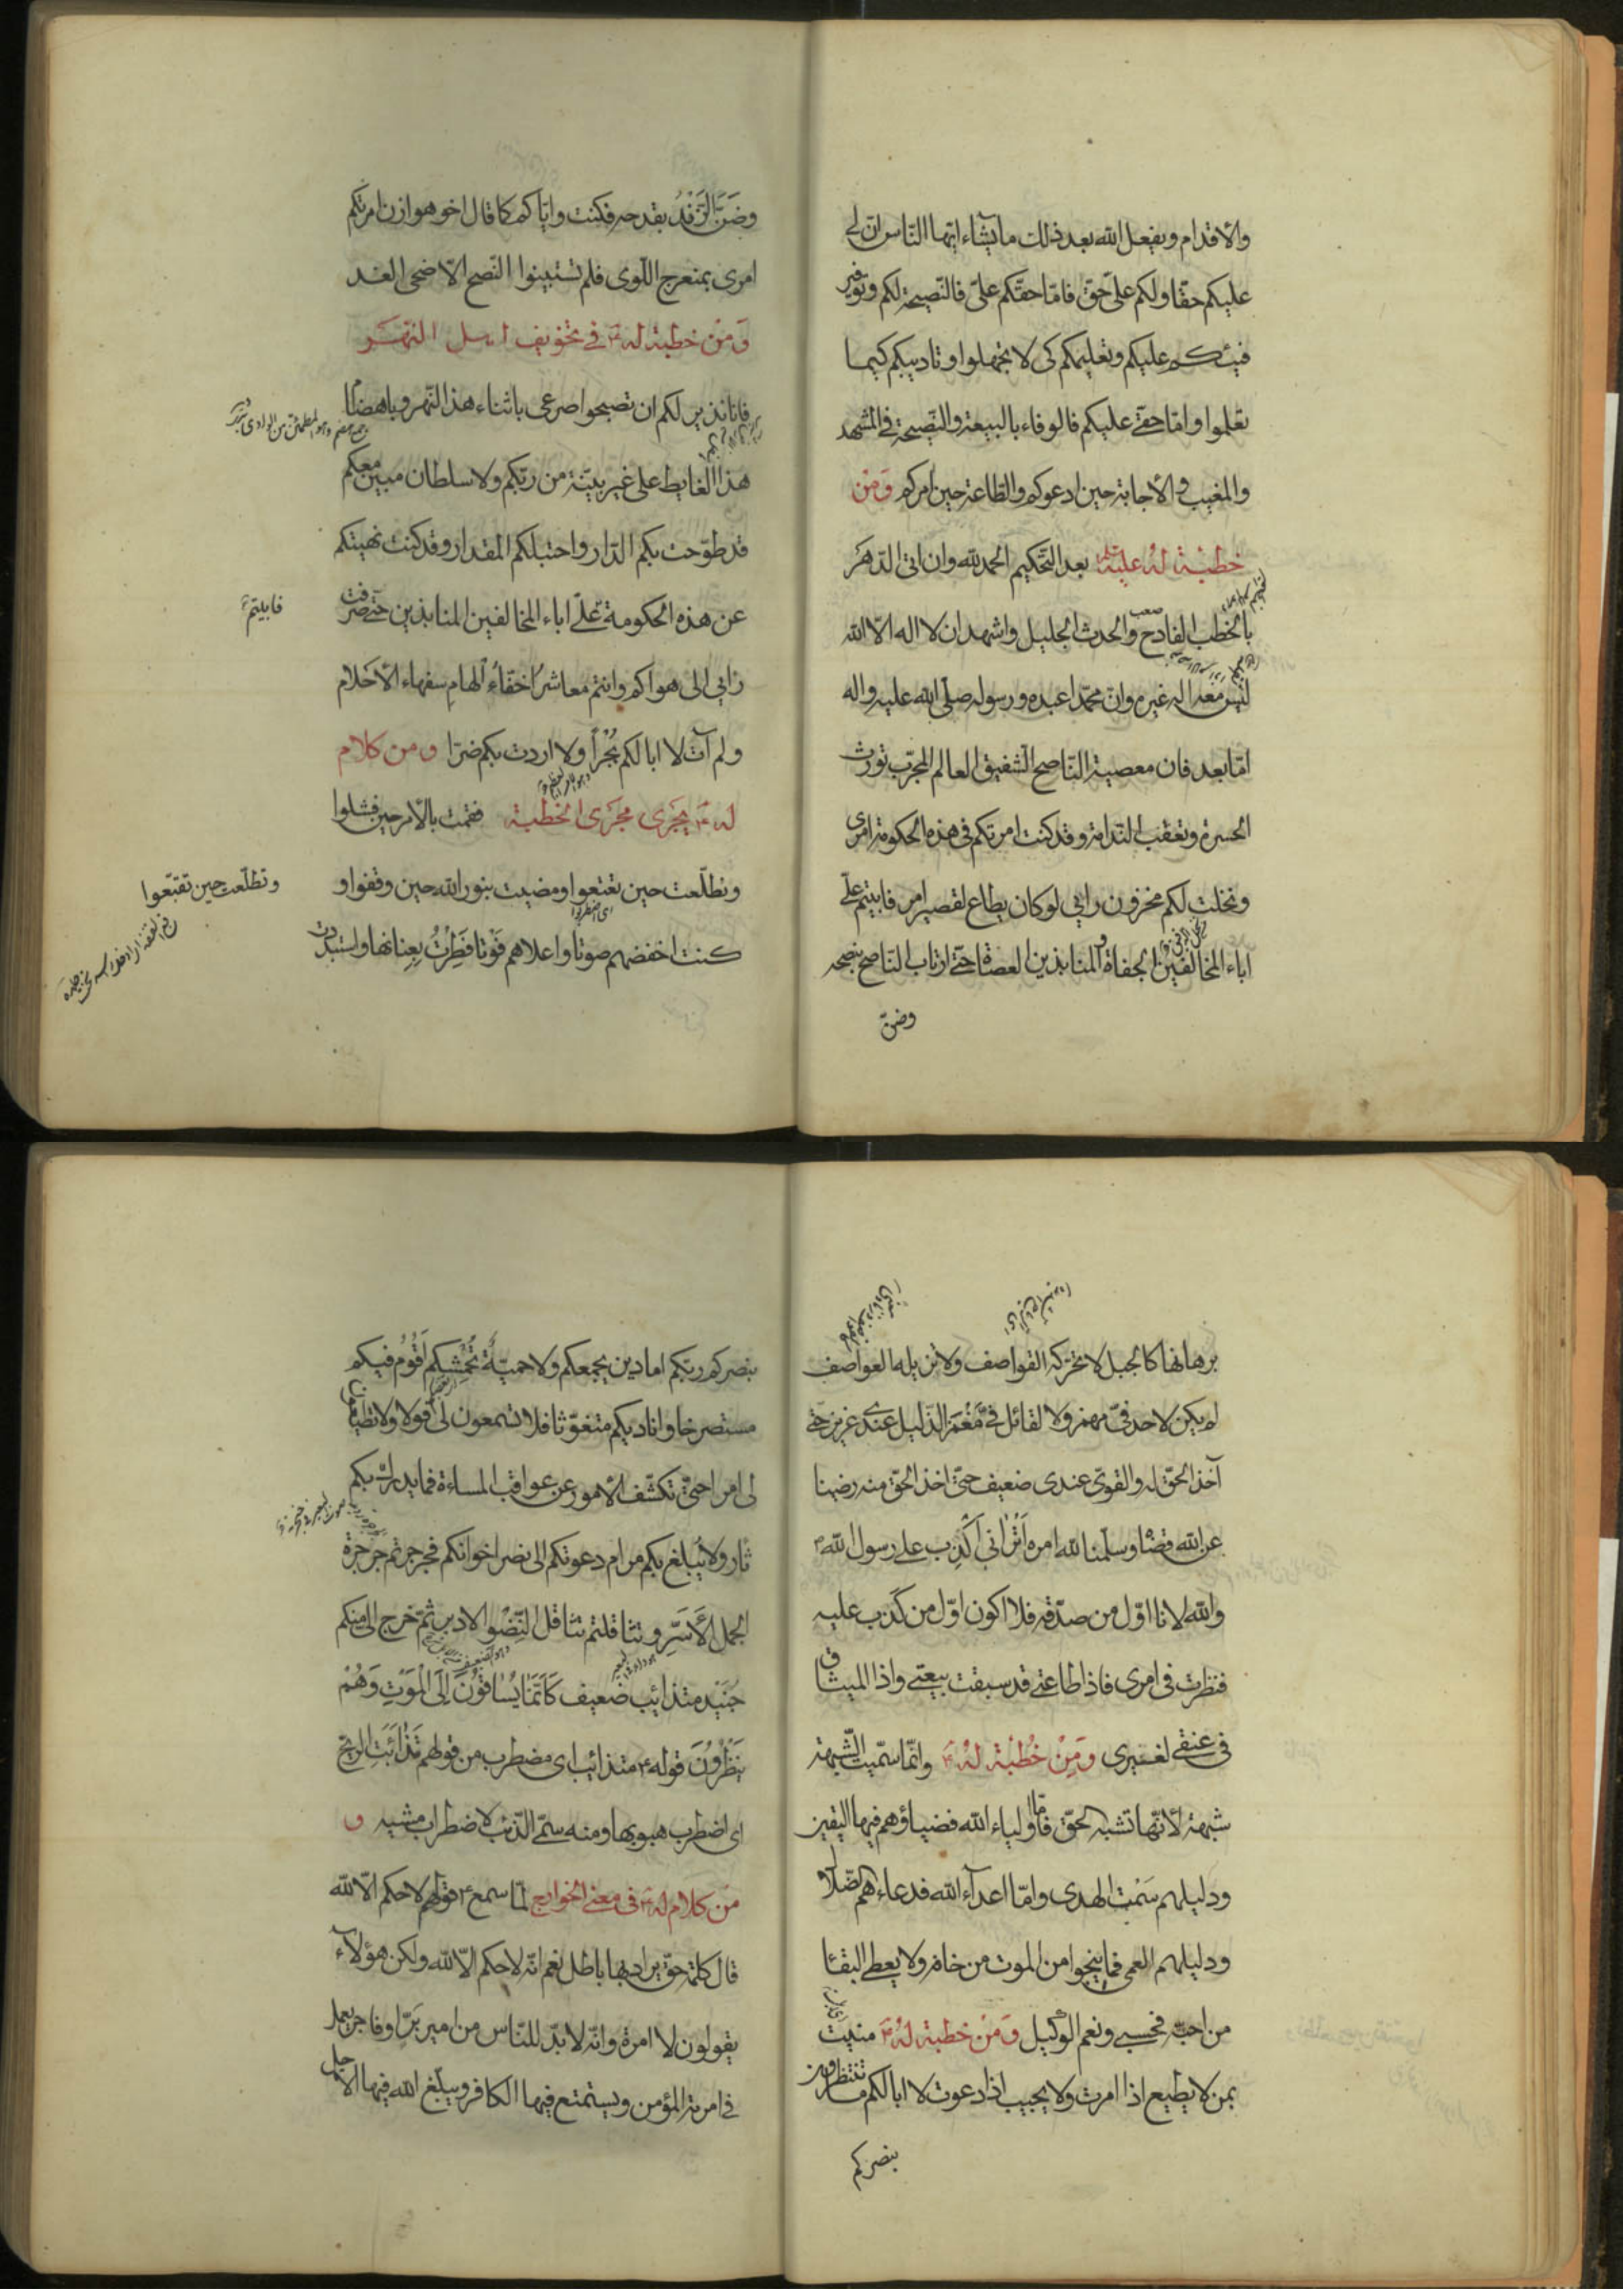 والأقدام ويفعل الله بعد ذلك ما يشاء ايّها النّاس انّ لي
عليكم حقّا ولكم علىّ حقّ فامّا حقّكم علىّ فالنّصيحة لكم وتوفير
فيئكم عليكم وتعليمكم كى لا تجهلوا وتاديبكم كيما
تعلموا وامّا حقّى عليكم فالوفاء بالبيعة والنّصيحة في المشهد
والمغيب والأجابة حين ادعوكم والطّاعة حين امركم وَمن
خطبة له عليه بعد التّحكيم الحمد لله وان اتى الدّهَر
بالخطب الفادح والحدث الجليل واشهد ان لا اله الّا الله
صعب
ليس معه اله غيره وانّ محمّدا عبده ورسوله صلّى الله عليه واله
امّا بعد فان معصية النّاصح الشفيق العالم المجرّب تورث
الحسرة وتعقب النّدامة وقد كنت امرتكم في هذه الحكومة امرى
ونخلت لكم مخزون رايي لو كان يطاع لقصير امر فابيتم علىّ
اباء المخالفين الجفاة والمنابذين العصاة حتّى ارتاب النّاصح بنصحه
وضنّ
وضَنَّ الزَّنْدُ بقدحه فكنت واياكم كما قال اخو هوازن امرتكم
امرى بمنعرج اللّوى فلم تستبينوا النّصح الّا ضحى الغد
وَمن خطبة له ع في تخويف اهل النّهَر
فانا نذير لكم ان تصبحوا صرعى باثناء هذا النّهر وباهضام
هذا الغايط على غير بيّنة من ربّكم ولا سلطان مبين معكم
قد طوّحت بكم الدّار واحتبلكم المقدار وقد كنت نهيتكم
عن هذه الحكومة علىّ اباء المخالفين المنابذين حتّى صرفت
فابيتم
رايي الى هواكم وانتم معاشرُ اخفّاءُ الهامِ سفهاء الأحلام
ولم آت لا ابا لكم بُجْراً ولا اردت بكم ضرّا ومن كلام
له ع يجرى مجرَى الخطبة فقمت بالأمر حين فشلوا
وتطلّعت حين تعتعوا ومضيت بنور الله حين وقفوا و
وتطلّعت حين تقبّعوا
اى اضطربوا
كنت اخفضهم صوتا واعلاهم فَوْتا فَطِرْتُ بِعِنانها واستبددت
برهانها كالجبل لا تحرّكه القواصف ولا تزيله العواصف
لم يكن لاحد فيّ مهمز ولا لقائل فيّ مَغْمَز الذّليل عندى عزيز حتّى
آخذ الحقّ له والقوىّ عندى ضعيف حتّى اخذ الحقّ منه رضينا
عن الله قضاء وسلّمنا لله امره أتراني أكذِب على رسول الله ص
والله لانا اوّل من صدّقه فلا اكون اوّل من كذب عليه
فنظرت في امرى فاذا طاعتى قد سبقت بيعتى واذا الميثاق
في عنقى لغيرى وَمِنْ خُطْبة لهُ ع وانّما سمّيت الشّبهة
شبهة لأنّها تشبه الحقّ فامّا اولياء الله فضياؤهم فيها اليقين
ودليلهم سَمْت الهدى وامّا اعدآء الله فدعاءهم الضّلال
ودليلهم العمى فما ينجوا من الموت من خافه ولا يعطى البقاء
من احبّه فحسبى ونعم الوكيل وَمنْ خطبة لهُ ع منيت
بمن لا يطيع اذا امرت ولا يجيب اذا دعوت لا ابا لكم ما تنتظرون
بنصركم
بنصركم ربّكم اما دين يجمعكم ولا حميّة تُحْمِشكم أقُومُ فيكم
مستصرخا واناديكم متغوّثا فلا تسمعون لى قولا ولا تطيعون
لى امرا حتّى تكشّف الأمور عن عواقب المساءة فما يدرك بكم
ثار ولا يُبلغ بكم مرام دعوتكم الى نصر اخوانكم فجرجرتم جرجرة
الجمل الأسَرِّ وتثاقلتم تثاقل النِّضْوِ الادبر ثمّ خرج الىّ منكم
جُنَيْد متذائب ضعيف كَاَنَّمَا يُسَاقُونَ اِلَى الْمَوْتِ وَهُمْ
يَنْظُرُونَ قوله ع متذائب اى مضطرب من قولهم تَذَائَبَتِ الريح
اى اضطرب هبوبها ومنه سمّى الذّئب لاضطراب مشيه و
من كلام له ع في معنى الخوارج لمّا سمع ع قولهم لا حكم الّا لله
قال كلمة حقّ يراد بها باطل نعم انّه لا حكم الّا لله ولكن هؤلآء
يقولون لا امرة وانّه لا بدّ للنّاس من امير بَرّ او فاجر يعمل
في امرته المؤمن ويستمتع فيها الكافر ويبلّغ الله فيها الأجل